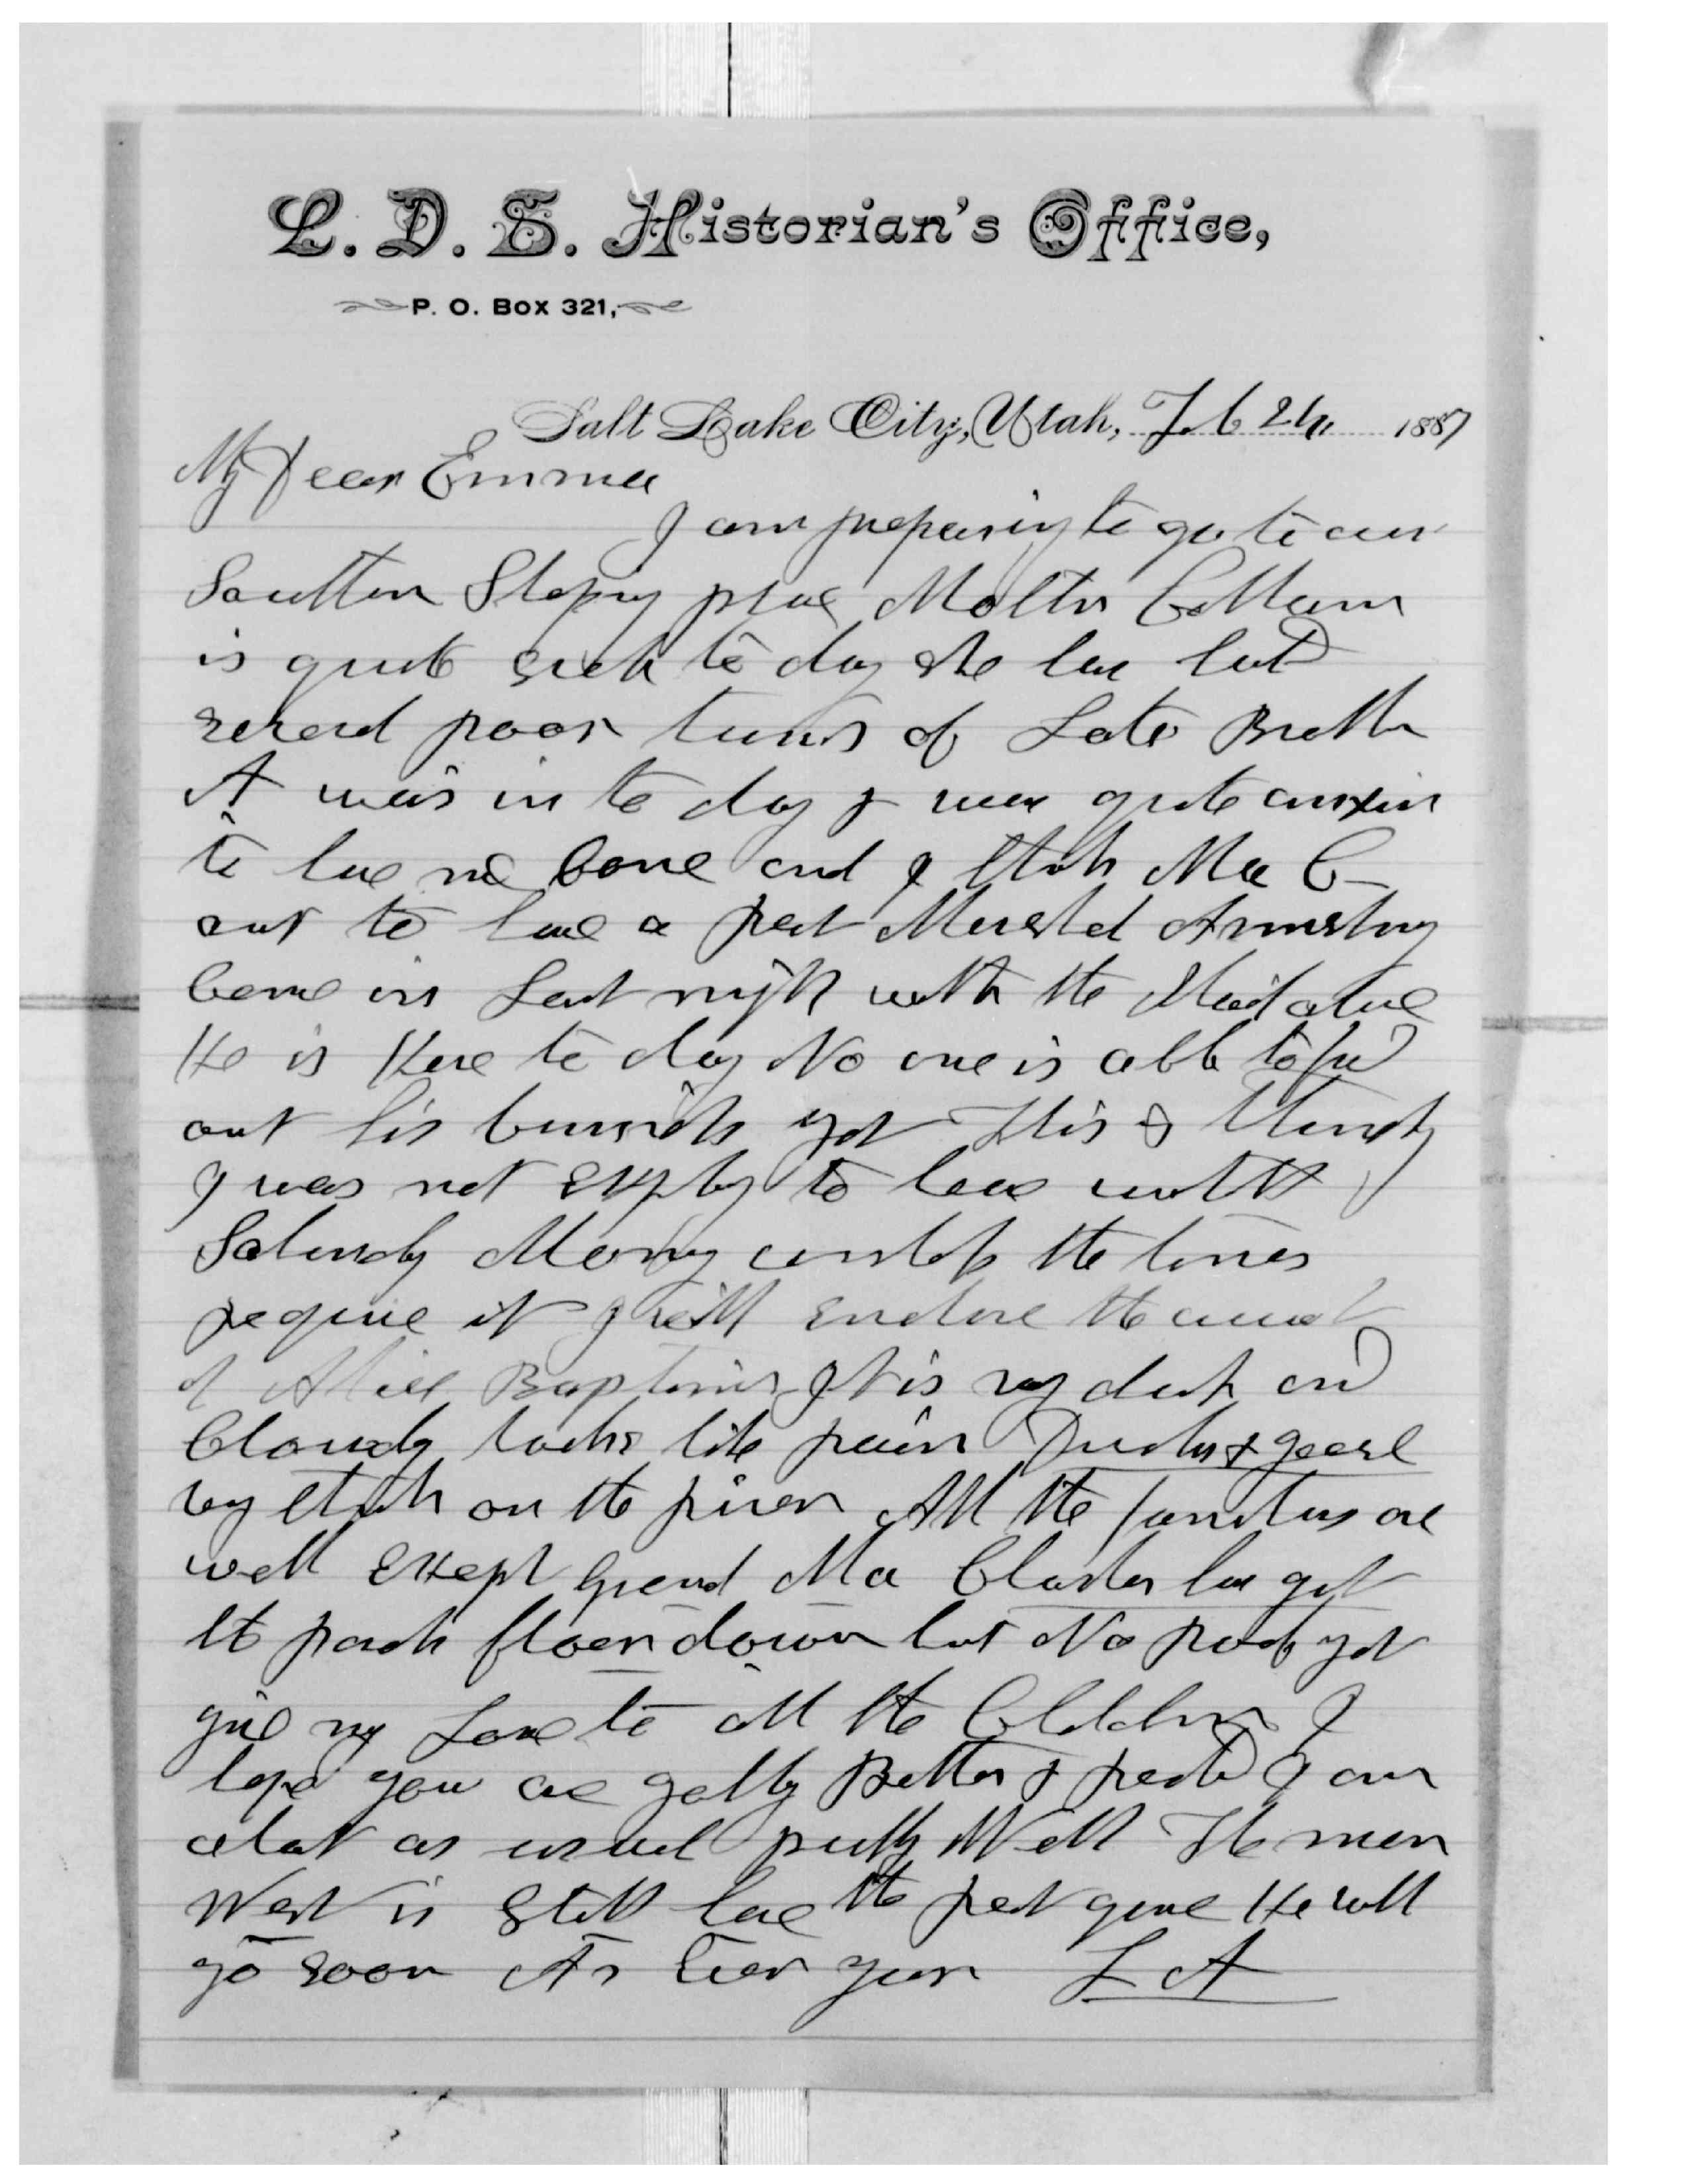 L. D. S. Historian's Office,
P. O. Box 321,
Salt Lake City, Utah, Feb 24, 1887
My Dear Emma
I am preparing to go to our
Southern Stoping place Mother Cottam
is quite sick to day She has had
several poor turns of Late Brother
A was in to day & was quite anxious
to have me come and I think Ma C
aut to have a rest Marshal Armstrong
came in Last night with the Mail alone
He is Here to day No one is able to find
out his buisness yet This is Thursdy
I was not Expting to leave untill
Saturdy Morning unless the times
require it I will Enclose the account
of Alice Baptism It is vey dark and
Cloudy looks like rain Ducks & geese
vey thick on the river All the families are
well Except Grand Ma Charles has got
the porch floor down but No roof yet
give my Love to all the Children I
hope you are getting Better & rested I am
about as usual pretty Well The man
West is Still here the rest gone He will
go soon As Ever yours L A